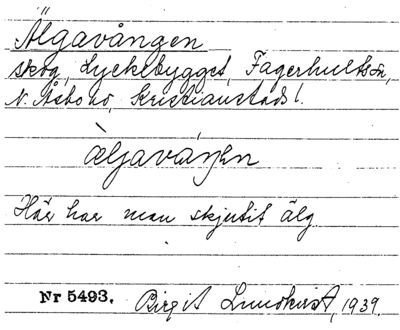 Älgavången
skog, Lyckebygget, Fagerhults sn,
N. Åsbo hd, Kristianstads l.
äljaváŋen
Här har man skjutit älg
Nr 5493. Birgit Lundkvist, 1939.